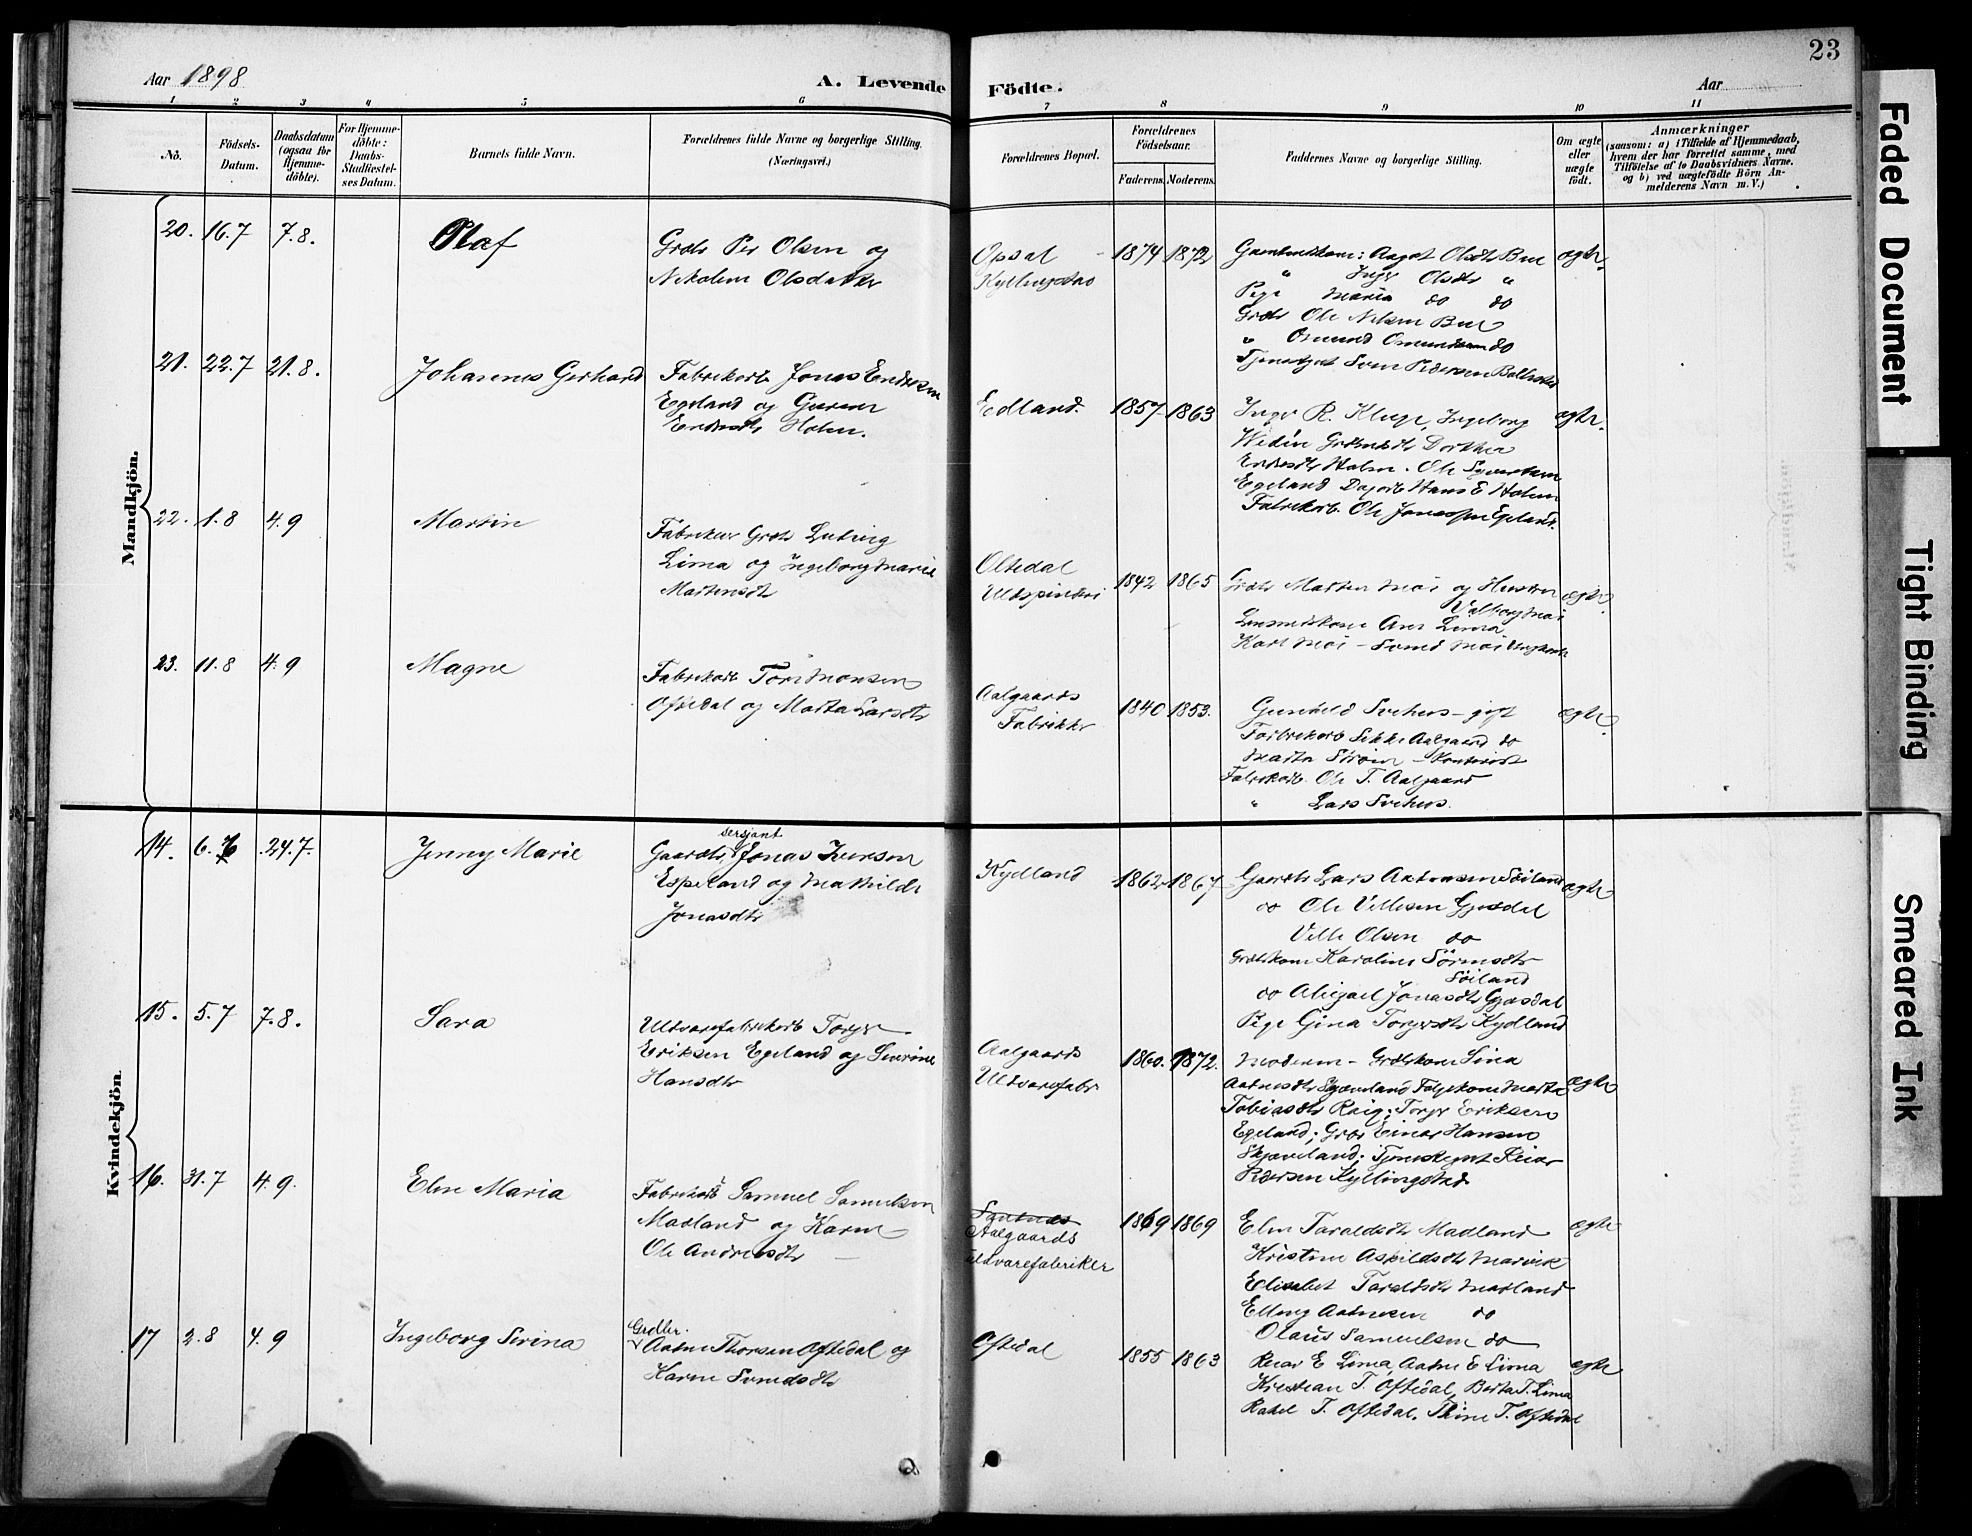 Aar 1898
A. Levende
Födte.
Aar
23
1 2 3 4 5 6 7 8 9 10 11
No.
Födsels-Datum.
Daabsdatum (ogsaa for Hjemme-döbte).
For Hjemme-döbte: Daabs-Stadfæstel-ses Datum.
Barnets fulde Navn.
Forældrenes fulde Navne og borgerlige Stilling.
(Næringsvei.)
Forældrenes Bopæl.
Forældrenes Födselsaar.
Faderens. Moderens.
Faddernes Navne og borgerlige Stilling.
Om ægte eller uægte födt.
Anmærkninger
(saasom: a) i Tilfælde af Hjemmedaab, hvem der har forrettet samme, med Tilföielse af to Daabsvidners Navne, og b) ved uægtefödte Börn An-melderens Navn m. V.)
Mandkjön.
20. 16.7 7.8. Olaf
Grdb Per Olsen og
Nikoline Olsdatter
Opsal
Kyllingstad
1874 1872
Gaardmandskone: Aagot Olsdt Bue
" Inger Olsdt "
Pige Maria do do
Grdb Ole Nilsen Bue
" Omund Omundsen do
Tjenestgut Sven Pedersen
ægte.
21. 22.7 21.8. Johannes Gerhard
Fabrikarb Jonas Endresen
Egeland og Gurine
Endresdt Holen.
Edland.
1857. 1863
Inger R. Kluge, Ingeborg
Endresdt Holen. Ole
Egeland Hans E Holen
Fabrikarb. Ole Jonassen Egeland.
ægte.
22. 1.8 4.9 Martin
Lima og Ingeborg Marie
Martinsdt
Oltedal
Uldspinderi
1842 1865
Grdb Martin Moi og Hustru
Valborg Moi
Lima
Karl Moi - Svend Moi
ægte.
23. 11.8 4.9 Magne
Fabrikarb Tore Monsen
Oftedal og Marta Larsdt
Aalgaards
Fabrikker
1840 1853.
Gunhild Svehus - gift
Fabrikarb Aalgaard do
Marta
Fabrikarb. Ole T. Aalgaard
" Lars Svehus.
ægte.
Kvindekjön.
14. 6.7 24.7. Jenny Marie
sersjant
Gaardb, Jonas Iverson
Espeland og Mathilde
Jonasdt
Kydland
1862 1867
Gaardb Lars Aatnesen Söiland
do Ole Villesen Gjesdal
Ville Olsen do
Grdbskone Karoline Sörensdt
Söiland
do Abigael Jonasdt Gjesdal
Pige Gina Torgersdt Kydland
ægte
15. 5.7 7.8. Sara
Uldvarefabrikarb Torger
Eriksen Egeland og Severine
Hansdt
Aalgaards
Uldvarefabr
1860. 1872.
Moderen - Grdbkone Sina
Aatnesdt Skjæveland Marta
Tobiasdt Raig; Torger Eriksen
Egeland; Grdbr Einar Hansen
Skjæveland; Tjenestegut Reiar
Pedersen Kyllingstad
ægte
16. 31.7 4.9. Elen Maria
Fabrikarb Samuel Samuelsen
Madland og Karen
Ole Andreasdt
Aalgaards
Uldvarefabriker
1869 1869
Elen Taraldsdt Madland
Kristine Aspildsdt Marvik
Elisabet Taraldsdt Madland
Elling Aatnesen do
Olaus Samuelsen do
ægte
17 2.8 4.9 Ingeborg Serina
Grdbr.
Aatne Thorsen Oftedal og
Karen Svendsdt
Oftedal
1855 1863
Reiar E Lima, Aatne E Lima
Kristian T. Oftedal, Berta T. Lima
Rakel T. Oftedal, Thine T. Oftedal
ægte
Faded Document
Tight Binding
Smeared Ink